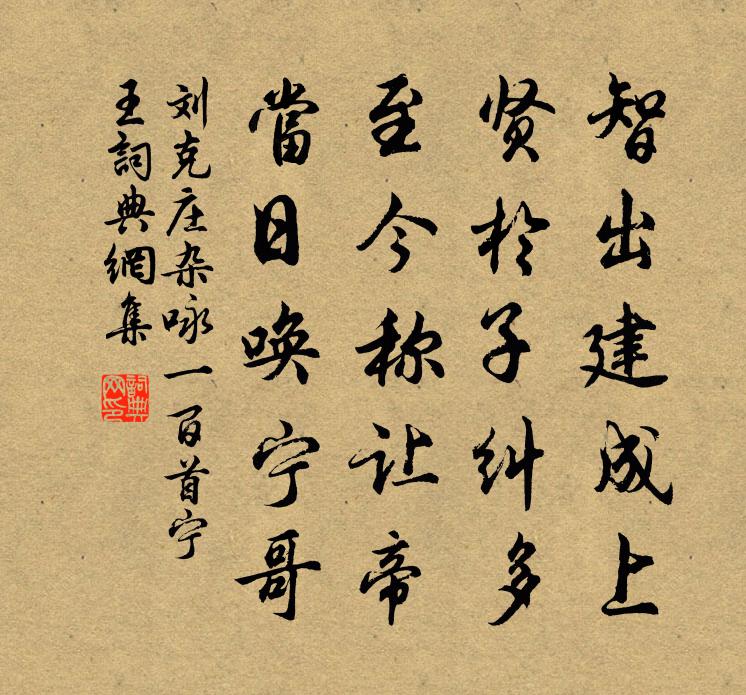 智出建成上
贤於子纠多
至今称让帝
當日唤宁哥
刘克庄杂咏一百首宁
王詞典網集
詞典网印